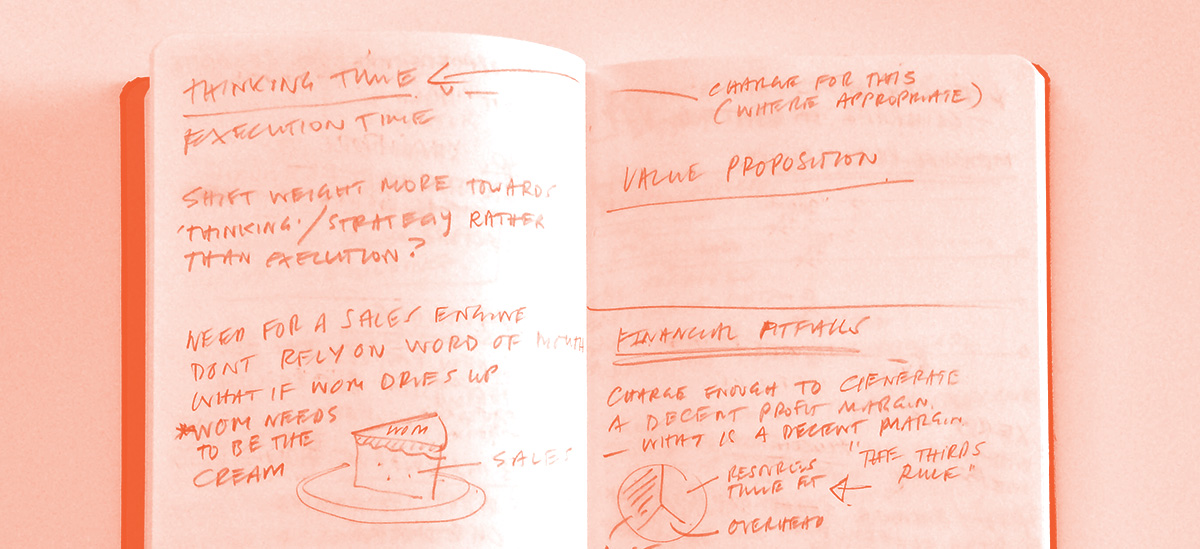 THINKING TIME
EXECUTION TIME
SHIFT WEIGHT MORE TOWARDS
'THINKING'/STRATEGY RATHER
THAN EXECUTION?
NEED FOR A SALES ENGINE
DONT RELY ON WORD OF MOUTH
WHAT IF WOM DRIES UP
*WOM NEEDS
TO BE THE
CREAM
WOM
SALES
CHARGE FOR THIS
(WHERE APPROPRIATE)
VALUE PROPOSITION
FINANCIAL PITFALLS
CHARGE ENOUGH TO GENERATE
A DECENT PROFIT MARGIN.
– WHAT IS A DECENT MARGIN.
"THE THIRDS
RULE"
RESOURCES
TIME
OVERHEAD